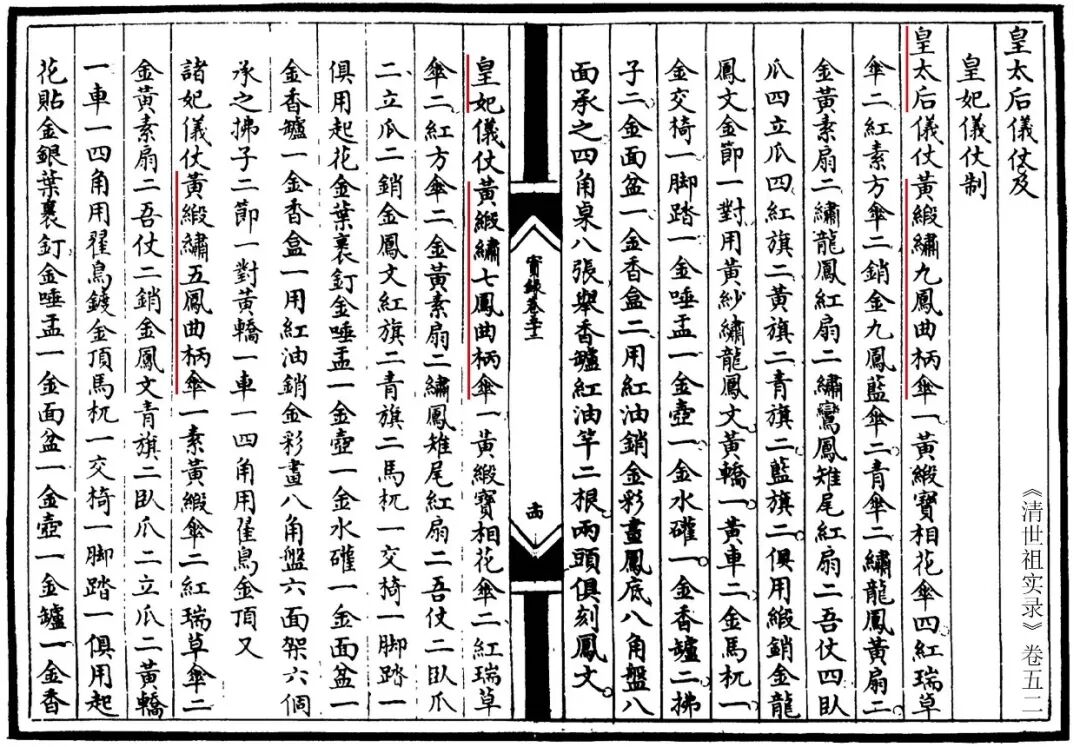 皇太后儀仗及
皇妃儀仗制
皇太后儀仗黃緞繡九鳳曲柄傘一黃緞寶相花傘四紅瑞草
傘二紅素方傘二銷金九鳳藍傘二青傘二繡龍鳳黃扇二
金黃素扇二繡龍鳳紅扇二繡鸞鳳雉尾紅扇二吾仗四臥
瓜四立瓜四紅旗二黃旗二青旗二藍旗二俱用緞銷金龍
鳳文金節一對用黃紗繡龍鳳文黃轎一黃車二金馬杌一
金交椅一脚踏一金唾盂一金壺一金水礶一金香罏二拂
子二金面盆一金香盒二用紅油銷金彩畫鳳底八角盤八
面承之四角桌八張舉香罏紅油竿二根兩頭俱刻鳳文
實錄卷五十二
皇妃儀仗黃緞繡七鳳曲柄傘一黃緞寶相花傘二紅瑞草
傘二紅方傘二金黃素扇二繡鳳雉尾紅扇二吾仗二臥瓜
二立瓜二銷金鳳文紅旗二青旗二馬杌一交椅一脚踏一
俱用起花金葉裹釘金唾盂一金壺一金水礶一金面盆一
金香罏一金香盒一用紅油銷金彩畫八角盤六面架六個
承之拂子二節一對黃轎一車一四角用翟鳥金頂又
諸妃儀仗黃緞繡五鳳曲柄傘一素黃緞傘二紅瑞草傘二
金黃素扇二吾仗二銷金鳳文青旗二臥瓜二立瓜二黃轎
一車一四角用翟鳥鍍金頂馬杌一交椅一脚踏一俱用起
花貼金銀葉裹釘金唾盂一金面盆一金壺一金罏一金香
《清世祖实录》卷五二